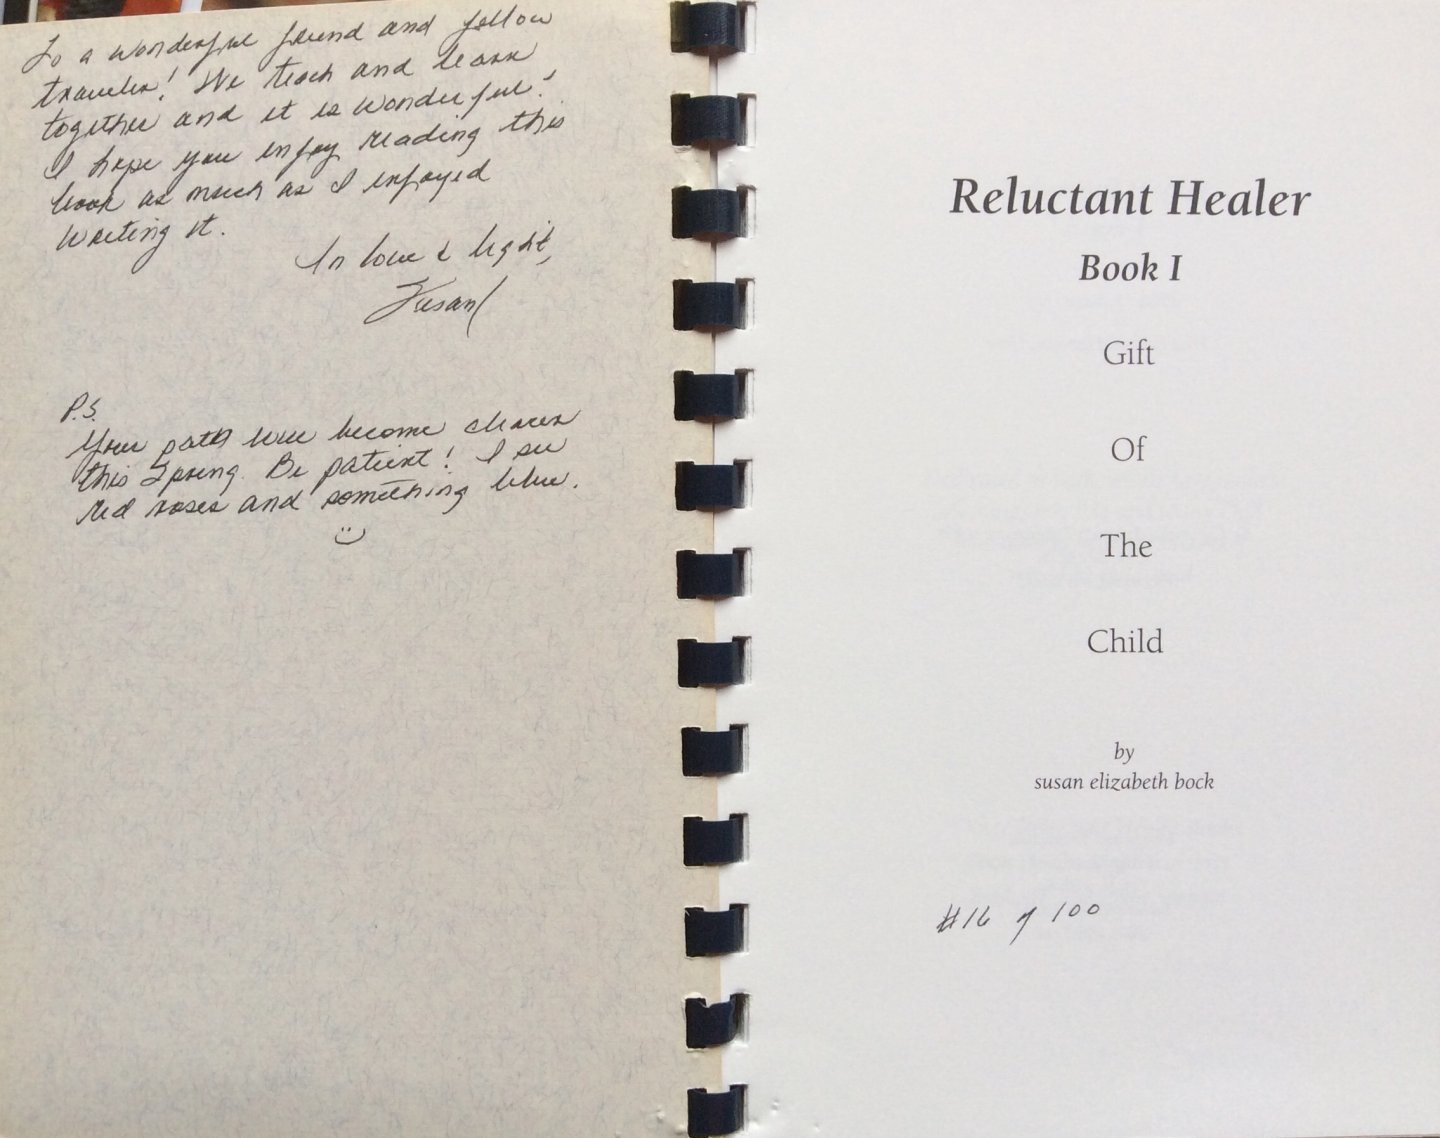 To a wonderful friend and fellow
traveler! We teach and learn
together and it is wonderful!
I hope you enjoy reading this
book as much as I enjoyed
writing it.
In love & light,
Susan
P.S.
Your path will become clearer
this Spring. Be patient! I see
red roses and something blue.
Reluctant Healer
Book I
Gift
Of
The
Child
by
susan elizabeth bock
#16 of 100